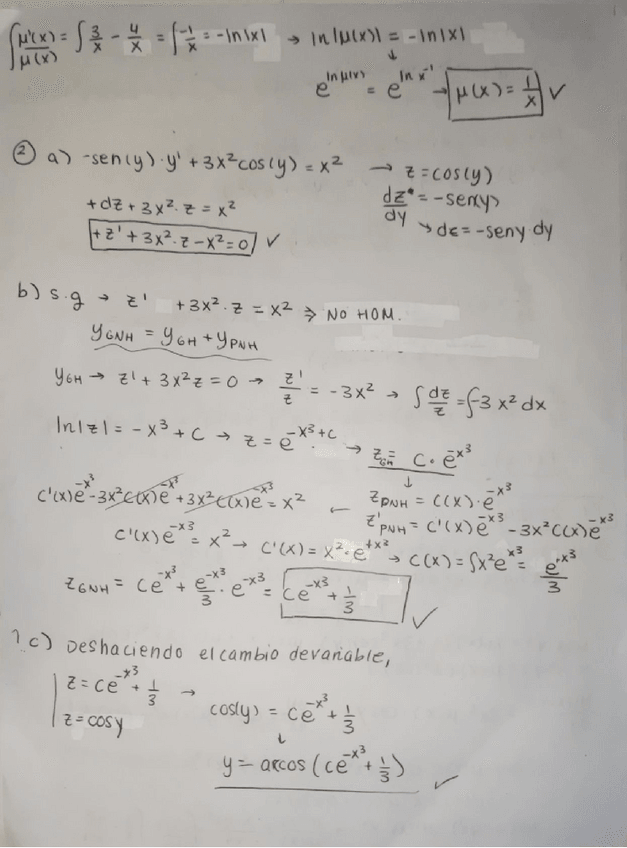 ∫μ'(x)/μ(x) = ∫3/x - 4/x = ∫-1/x = -ln|x| → ln|μ(x)| = -ln|x|
↓
e^ln μ(x) = e^ln x^-1 → μ(x) = 1/x ✓
② a) -sen(y)·y' + 3x²cos(y) = x² → z = cos(y)
+dz + 3x²·z = x² dz/dy = -sen(y)
+z' + 3x²·z - x² = 0 ✓ → dz = -seny dy
b) s.g → z' + 3x²·z = x² ⇒ NO HOM.
y_GNH = y_GH + y_PNH
y_GH → z' + 3x²z = 0 → z'/z = -3x² → ∫dz/z = ∫-3x²dx
ln|z| = -x³ + C → z = e^-x³+C → z_GH = C·e^-x³
↓
C'(x)e^-x³ - 3x²C(x)e^-x³ + 3x²C(x)e^-x³ = x² ← z_PNH = C(x)·e^-x³
z'_PNH = C'(x)e^-x³ - 3x²C(x)e^-x³
C'(x)e^-x³ = x² → C'(x) = x²·e^+x³ → C(x) = ∫x²e^x³ = e^x³/3
z_GNH = Ce^-x³ + e^x³/3 · e^-x³ = Ce^-x³ + 1/3 ✓
c) Deshaciendo el cambio de variable,
z = Ce^-x³ + 1/3 →
z = cosy cos(y) = Ce^-x³ + 1/3
↓
y = arcos(Ce^-x³ + 1/3) ✓